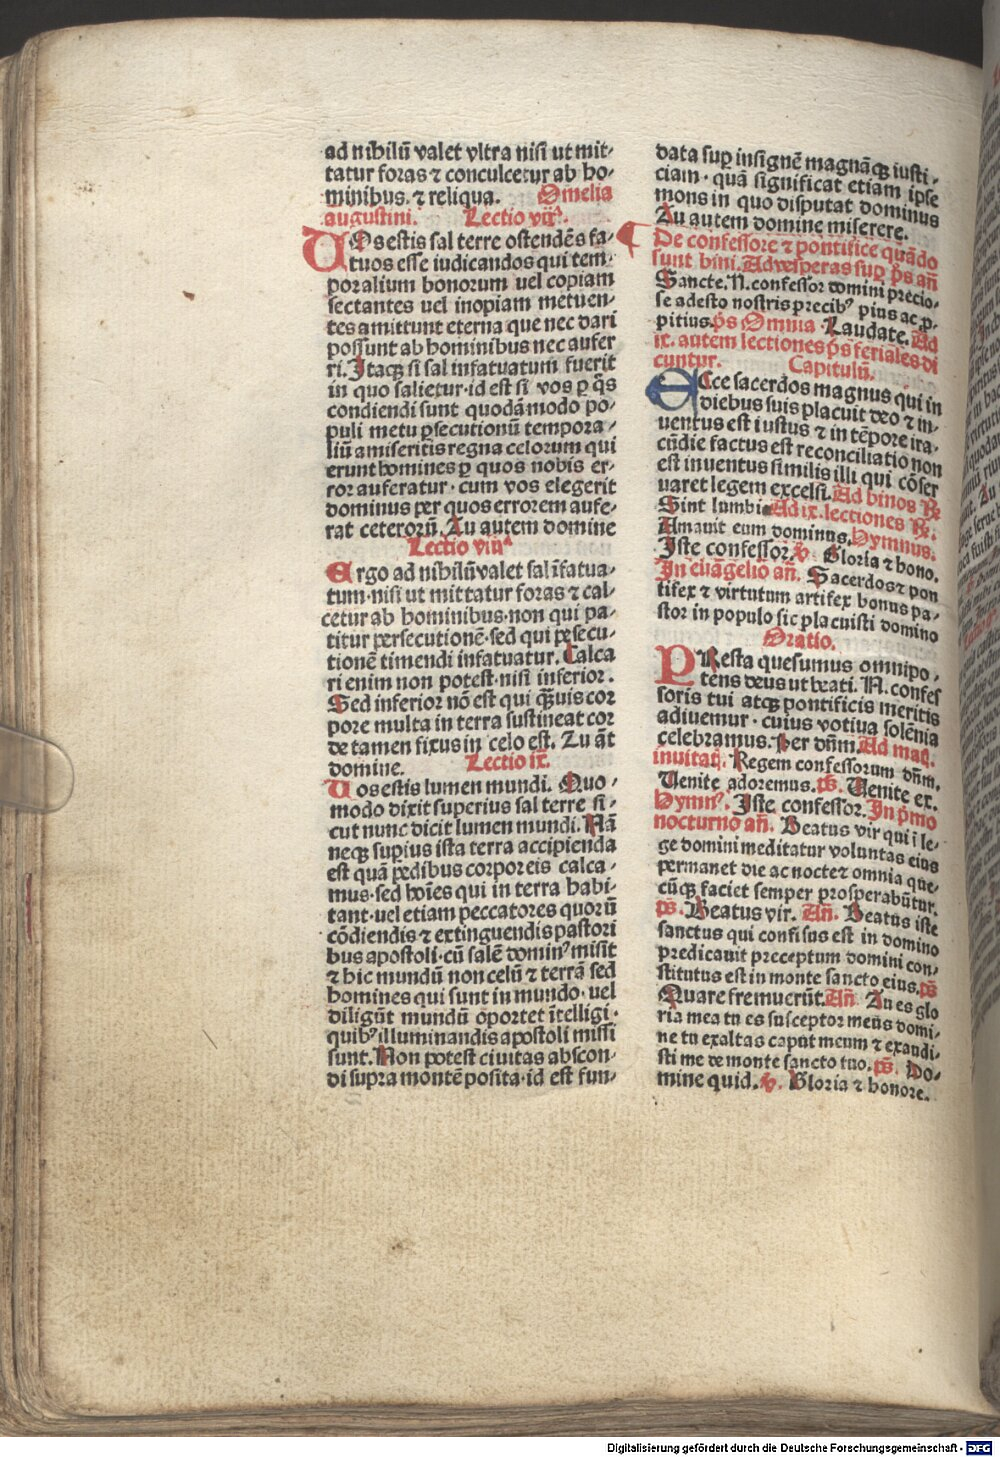 ad nibilū valet vltra nisi ut mit-
tatur foras ⁊ conculcetur ab ho-
minibus. ⁊ reliqua. Omelia
augustini. Lectio vij.ᵃ
VOs estis sal terre ostendēs fa-
tuos esse iudicandos qui tem-
poralium bonorum uel copiam
sectantes uel inopiam metuen-
tes amittunt eterna que nec dari
possunt ab hominibus nec aufer
ri. Itaqꝫ si sal infatuatum fuerit
in quo salietur·id est si vos ꝑ q̄s
condiendi sunt quodā modo po-
puli metu ꝑsecutionū tempora-
liū amiseritis regna celorum qui
erunt homines ꝑ quos nobis er-
ror auferatur·cum vos elegerit
dominus per quos errorem aufe-
rat ceterorū. Tu autem domine
Lectio viijᵃ
Ergo ad nihilū valet sal īfatua-
tum·nisi ut mittatur foras ⁊ cal-
cetur ab hominibus·non qui pa-
titur persecutionē·sed qui ꝑsecu-
tionē timendi infatuatur. Calca
ri enim non potest·nisi inferior.
Sed inferior nō est qui q̄uis cor
pore multa in terra sustineat cor
de tamen fixus in celo est. Tu āt
domine. Lectio ix.
Vos estis lumen mundi. Quo-
modo dixit superius sal terre si-
cut nunc dicit lumen mundi. Nā
neqꝫ suꝑius ista terra accipienda
est quā pedibus corporeis calca-
mus·sed hoīes qui in terra habi-
tant·uel etiam peccatores quorū
cōdiendis ⁊ extinguendis pastori
bus apostoli·cū salē dominꝰ misit
⁊ hic mundū non celū ⁊ terrā sed
homines qui sunt in mundo·uel
diligūt mundū oportet ītelligi·
quibꝰ illuminandis apostoli missi
sunt. Non potest ciuitas abscon-
di supra montē posita·id est fun-
data suꝑ insignē magnāqꝫ iusti-
ciam·quā significat etiam ipse
mons in quo disputat dominus
Tu autem domine miserere.
De confessore ⁊ pontifice quādo
sunt bini. Ad vesperas suꝑ p̄s an̄
Sancte. N. confessor domini precio-
se adesto nostris precibꝰ pius ac ꝓ-
pitius. p̄s Omnia Laudate. Ad
ix. autem lectiones p̄s feriales di
cuntur. Capitulū.
Ecce sacerdos magnus qui in
diebus suis placuit deo ⁊ in-
uentus est iustus ⁊ in tēpore ira-
cūdie factus est reconciliatio non
est inuentus similis illi qui cōser
uaret legem excelsi. Ad binos ℟
Sint lumbi Ad ix. lectiones ℟.
Amauit eum dominus. Hymnus.
Iste confessor. ℣. Gloria ⁊ hono.
In euāgelio an̄. Sacerdos ⁊ pon
tifex ⁊ virtutum artifex bonus pa-
stor in populo sic placuisti domino
Oratio.
PResta quesumus omnipo-
tens deus ut beati. N. confes
soris tui atqꝫ pontificis meritis
adiuemur·cuius votiua solēnia
celebramus. Per dn̄m. Ad mat.
inuitat. Regem confessorum dn̄m.
Uenite adoremus. ps. Uenite ex.
Hymnꝰ. Iste confessor. In p̄mo
nocturno an̄. Beatus vir qui ī le-
ge domini meditatur voluntas eius
permanet die ac nocte⁊ omnia que-
cūqꝫ faciet semper prosperabūtur.
ps. Beatus vir. An̄. Beatus iste
sanctus qui confisus est in domino
predicauit preceptum domini con-
stitutus est in monte sancto eius. ps
Quare fremuerūt. An̄ Tu es glo
ria mea tu es susceptor meus domi-
ne tu exaltas caput meum ⁊ exaudi-
sti me de monte sancto tuo. ps. Do-
mine quid. ℣. Gloria ⁊ honore.
Digitalisierung gefördert durch die Deutsche Forschungsgemeinschaft - DFG